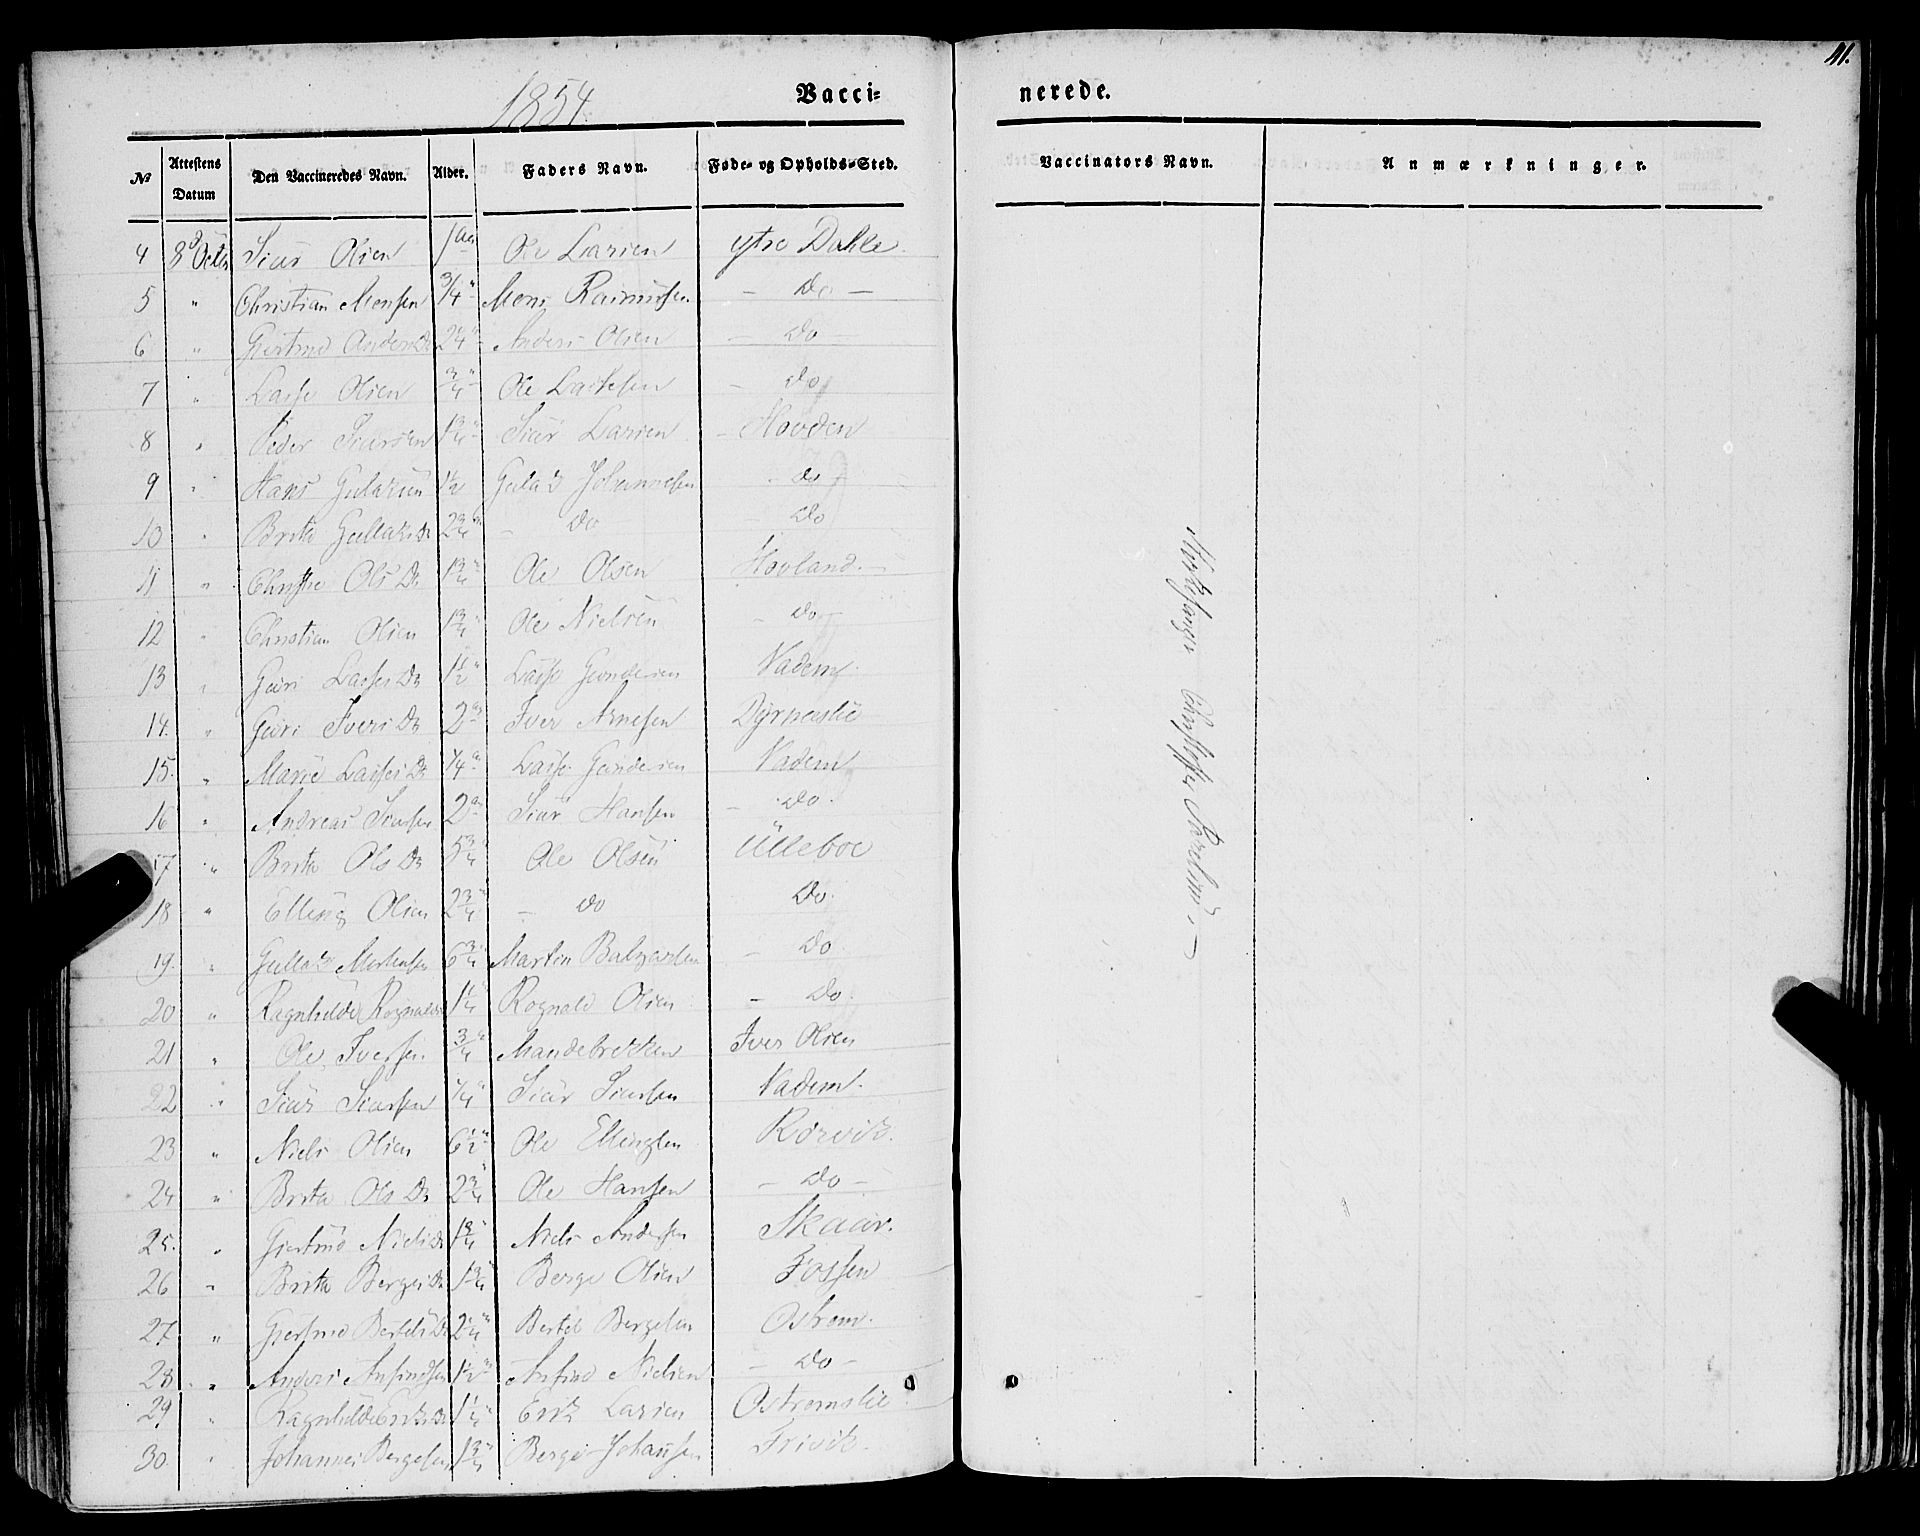 1854.
Vacci-
nerede.
41.
№ Attestens Datum Den Vaccineredes Navn. Alder. Faders Navn. Føde- og Opholds-Sted. Vaccinators Navn. Anmærkninger.
4 8d Octbr Siur Olsen 1 aar Ole Larsen ytre Dahle
5 " Christian Monsen 3/4 " Mons Rasmussen — Do —
6 " Giertrud Anders Dr 2 1/4 " Anders Olsen — Do —
7 " Lasse Olsen 3/4 " Ole Lassesen — Do
8 " Peder Siursen 1 3/4 " Siur Larsen — Hovden
9 " Hans Gulaksen 1 1/2 Gulak Johannesen - Do
10 " Brita Gullaks Dr 2 3/4 — Do — Do
11 " Christie Ols Dr 1 3/4 " Ole Olsen Hovland.
12 " Christian Olsen 1 3/4 " Ole Nielsen — Do —
13 " Guri Lasses Dr 1 1/2 " Lasse Gundersen Vadem.
14. " Guri Ivers Dr 2 aar Iver Arnesen Dyrneslie
15. " Marie Lasses Dr 1/4 Lasse Gundersen Vadem
16 " Andreas Siursen 2 aar Siur Hansen — Do.
17 " Brita Ols Dr 5 3/4 " Ole Olsen Ulleboe
18 " Elling Olsen 2 3/4 " — Do Do.
19. " Gullak Mortensen 6 3/4 " Martin — Do.
20 " Ragnhilde Rognalds 1 1/4 " Rognald Olsen — Do.
21 " Ole Iversen 3/4 " Mandebrekken Iver Olsen
22 " Siur Siursen 1/4 " Siur Siursen Vadem.
23 " Niels Olsen 6 1/2 " Ole Ellingsen Rørvik.
24 " Brita Ols Dr 2 3/4 " Ole Hansen — Do —
25. " Giertrud Niels Dr 1 3/4 " Niels Andersen Skaar.
26 " Brita Berges Dr 1 3/4 " Berge Olsen Fossen
27. " Giertrud Bertels Dr 2 1/4 " Bertel Bergesen Ostrem.
28. " Anders Anfindsen 1 1/2 " Anfind Nielsen — Do —
29 " Ragnhilde Eriks Dr 1 1/4 " Erik Larsen Ostremslie
30. " Johannes Bergesen 1 3/4 " Berge Johansen Frivik.